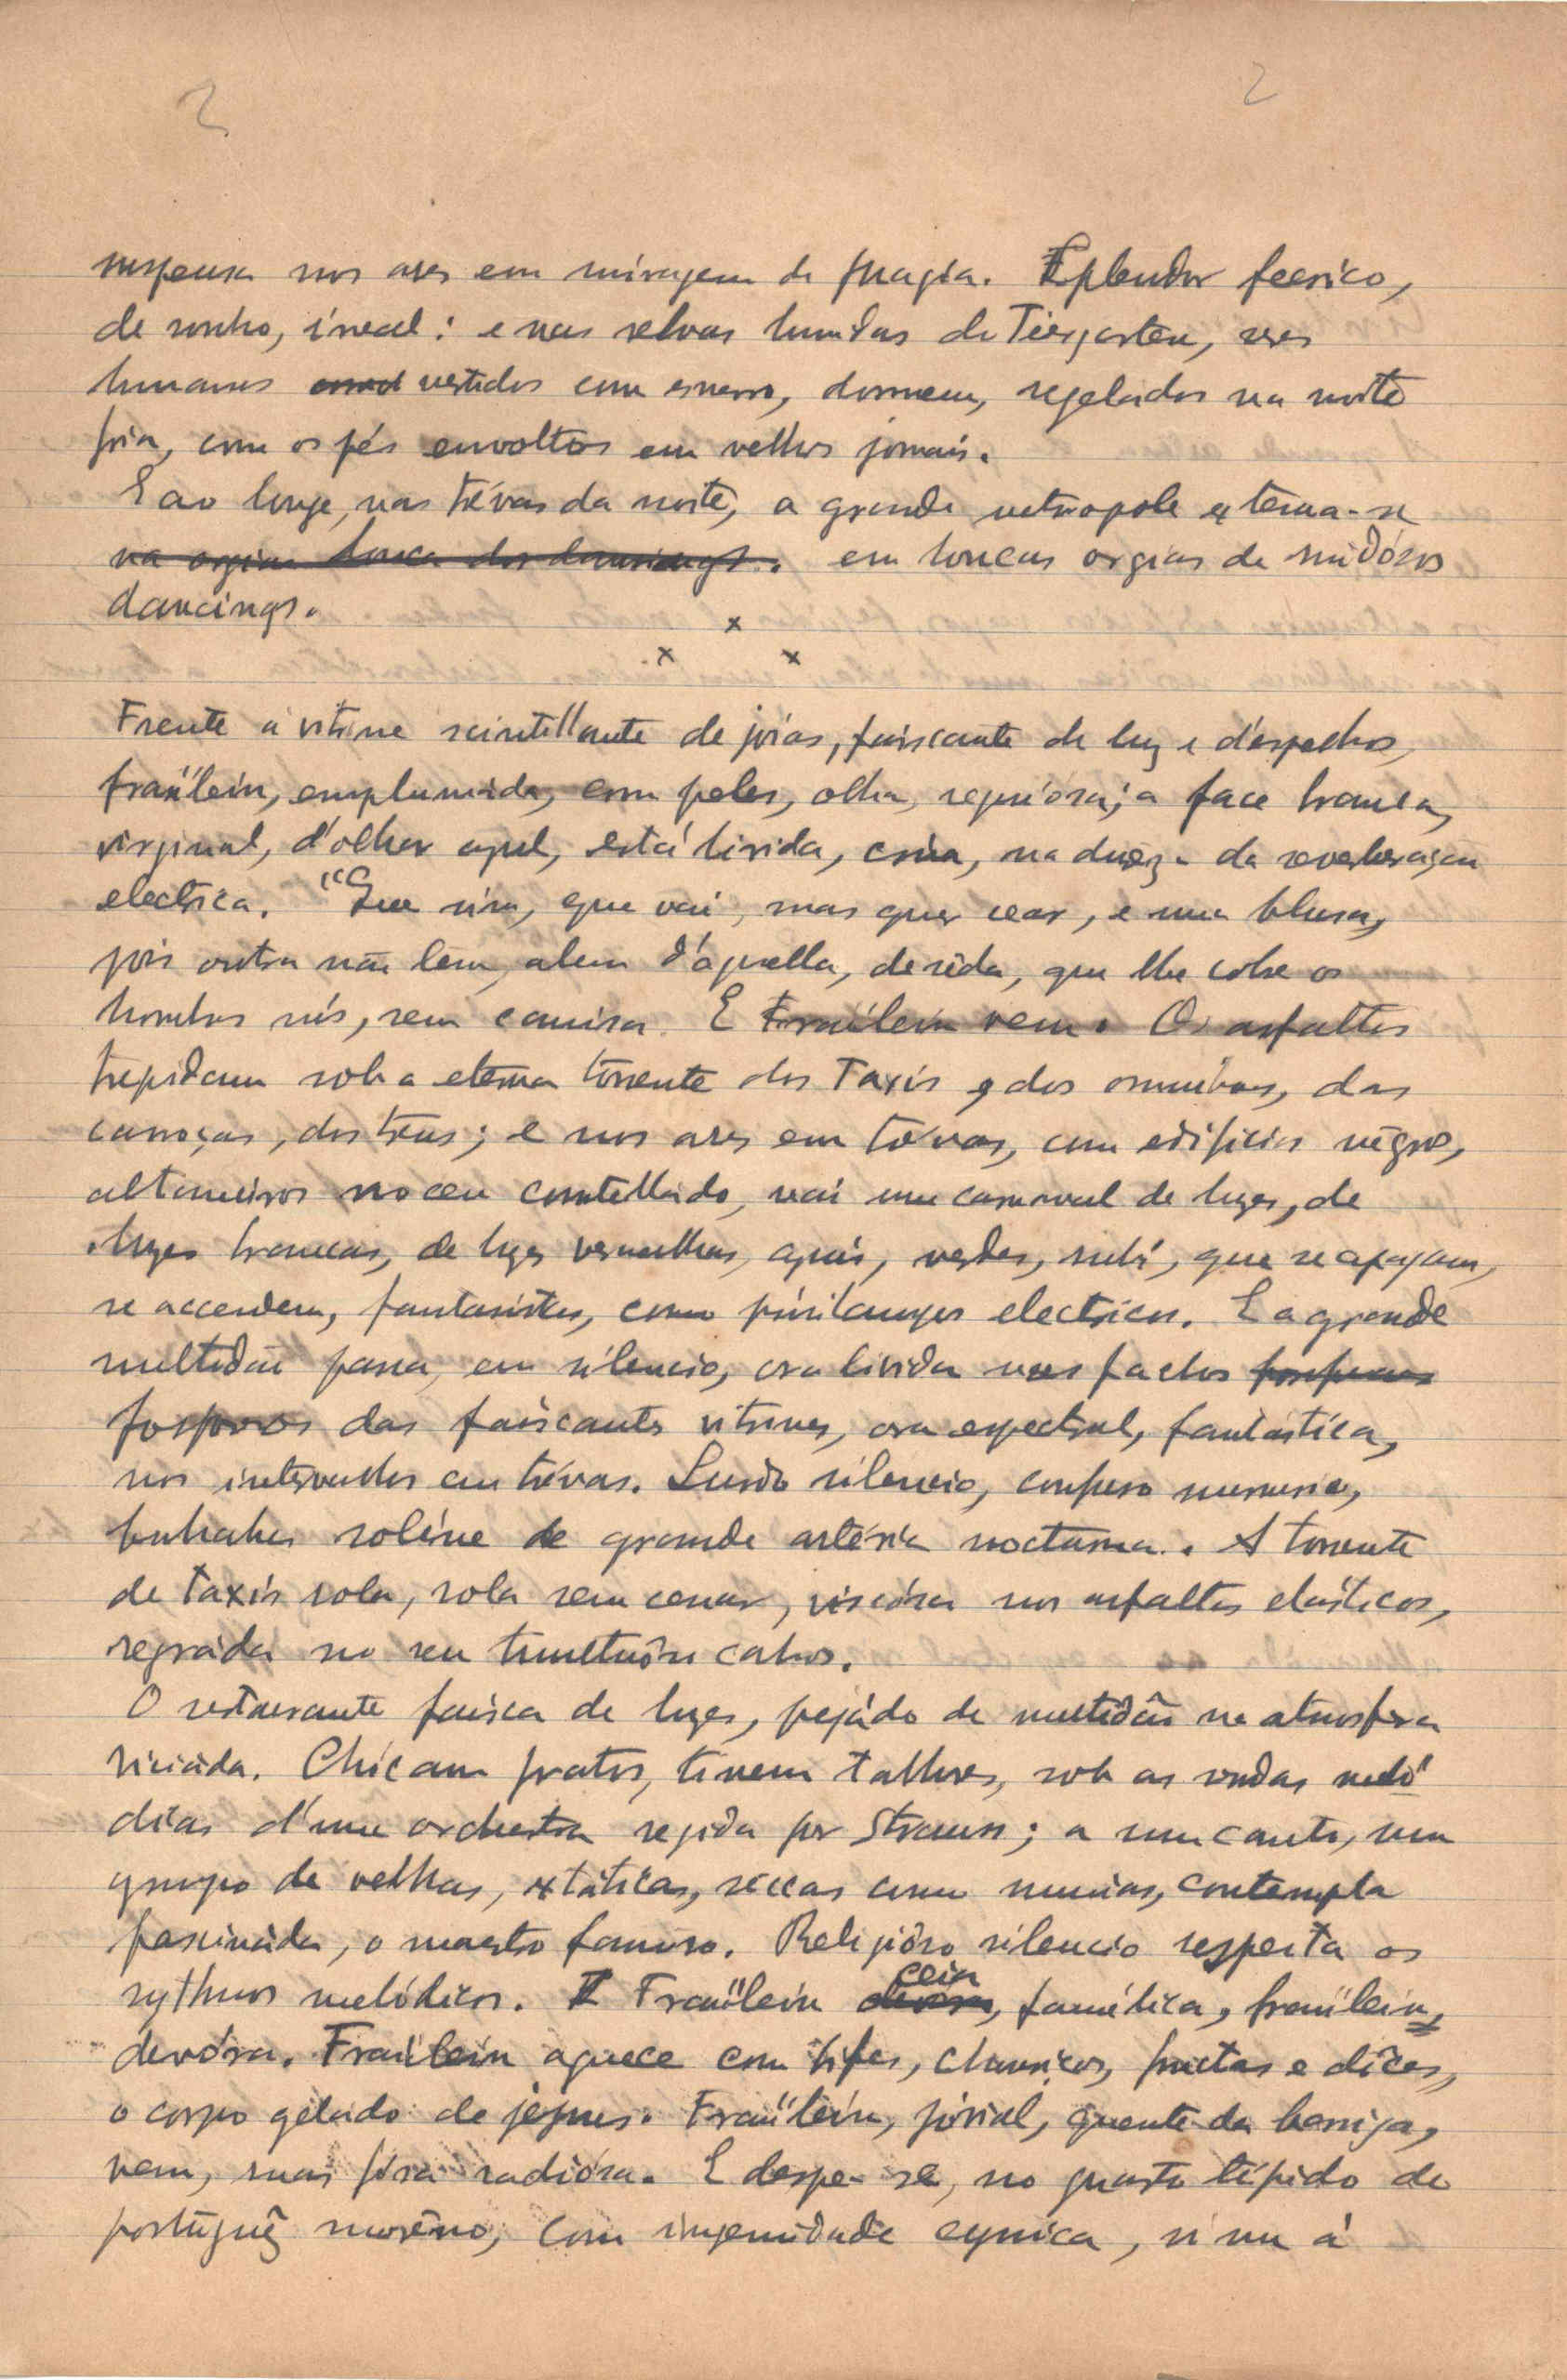 2 2
suspensa nos ares em miragem de magia. Esplendor feerico,
de sonho, irreal: e nas relvas humidas do Tiergarten, seres
humanos vestidos com esmero, dormem, regelados na noite
fria, com os pés envoltos em velhos jornais.
E ao longe, nas trévas da noite, a grande metropole extenua-se
na orgia louca dos dancings. em loucas orgias de ruidósos
dancings.
x
x x
Frente á vitrine scintillante de joias, faiscante de luz e d'espelhos,
fraülein, emplumada, com peles, olha, sequiósa; a face branca,
virginal, d'olhar azul, está livida, crúa, na dureza da reverberaçao
electrica. "Que sim, que vai, mas quer cear, e uma blusa,
pois outra não tem, alem d'aquella, de sêda, que lhe cobre os
hombros nús, sem camisa. E Fraülein vem. Os asfaltos
trepidam sob a eterna torrente dos Taxis e dos omnibus, das
carroças, dos trens; e nos ares em trévas, com edificios negros,
altaneiros no ceu constellado, vai um carnaval de luzes, de
luzes brancas, de luzes vermelhas, azuis, verdes, rubí, que se apagam,
se accendem, fantasistas, como pirilampos electricos. E a grande
multidão passa, em silencio, ora livida nos fachos
fosforos das faiscantes vitrines, ora espectral, fantástica,
nos intervallos em trévas. Surdo silencio, confuso murmurio,
solene de grande artéria nocturna. A torrente
de taxis rola, rola sem cessar, viscósa nos asfaltos elásticos,
regrada no seu tumultuôso cahos.
O restaurante faisca de luzes, pejádo de multidão na atmosfera
viciada. Chócam pratos, tinem talheres, sob as ondas meló
dicas d'uma orchestra regida por Strauss; a um canto, um
grupo de velhas, extáticas, seccas como mumias, contempla
fascinada, o maestro famoso. Religiôso silencio respeita os
rythmos melódicos. E Fraülein ceia, famélica, fraülein,
devóra. Fraülein aquece com bifes, chouriços, fructas e dôces,
o corpo gelado de jejuns. Fraülein, jovial, quente da barriga,
vem, ruas fóra radiósa. E despe-se, no quarto tépido do
português morêno, com ingenuidade cynica, si nua á